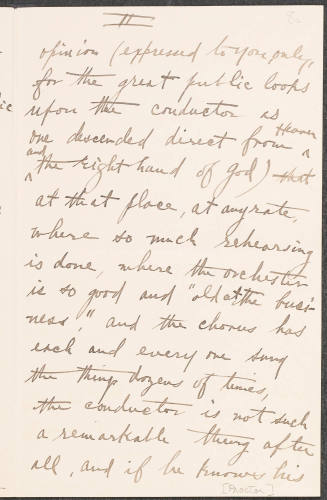 II
opinion (expressed to you only,
for the great public looks
upon the conductor as
one descended direct from Heaven
and the right hand of God) that
at that place, at any rate,
where so much rehearsing
is done, where the orchester
is so good and "old at the busi-
ness," and the chorus has
each and every one sung
the things dozens of times,
the conductor is not such
a remarkable thing after
all, and if he knows his
[Proctor]